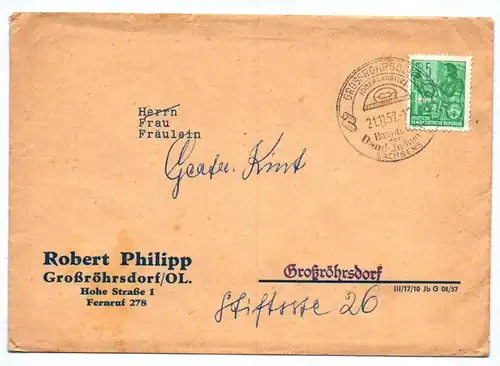 GROSSRÖHRSDORF
21.11.57
Band-
SACHSENS
5
DEUTSCHE
DEMOKRATISCHE REPUBLIK
Herrn
Frau
Fräulein
Kint
Robert Philipp
Großröhrsdorf/OL.
Hohe Straße 1
Fernruf 278
Großröhrsdorf
III/17/10 Jb G 08/57
Stiftstr 26